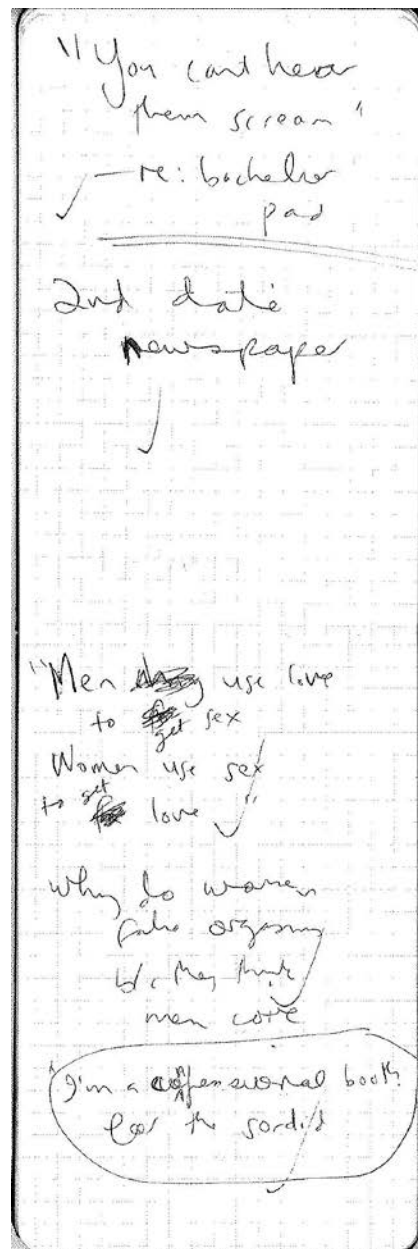 "You cant hear
them scream"
— re: bachelor
pad
2nd date
newspaper
"Men use love
to get sex
Women use sex
to get love"
why do women
fake orgasms
b/c they think
men care
"I'm a confessional booth
for the sordid